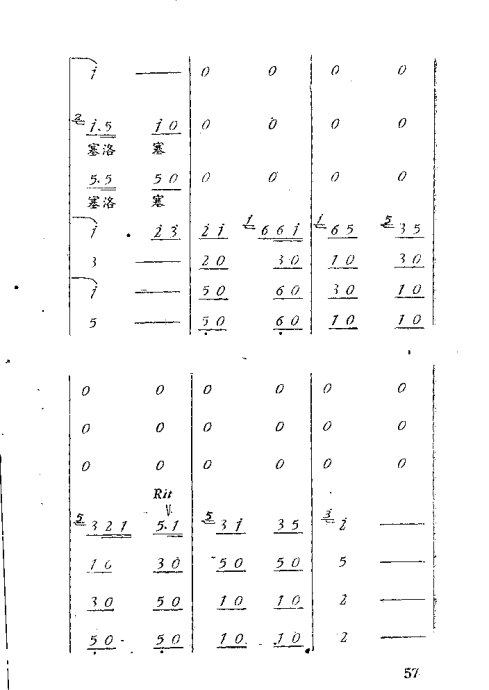 i — 0 0 0 0
2 i.5 i 0 0 0 0 0
塞洛 塞
5.5 5 0 0 0 0 0
塞洛 塞
i 2 3 2 i 1 6 6 i 1 6 5 5 3 5
3 — 2 0 3 0 1 0 3 0
i — 5 0 6 0 3 0 1 0
5 — 5 0 6 0 1 0 1 0
0 0 0 0 0 0
0 0 0 0 0 0
0 0 0 0 0 0
Rit
5 3 2 1 5.1 5 3 i 3 5 3 2 —
1 0 3 0 5 0 5 0 5 —
3 0 5 0 1 0 1 0 2 —
5 0 5 0 1 0 1 0 2 —
57